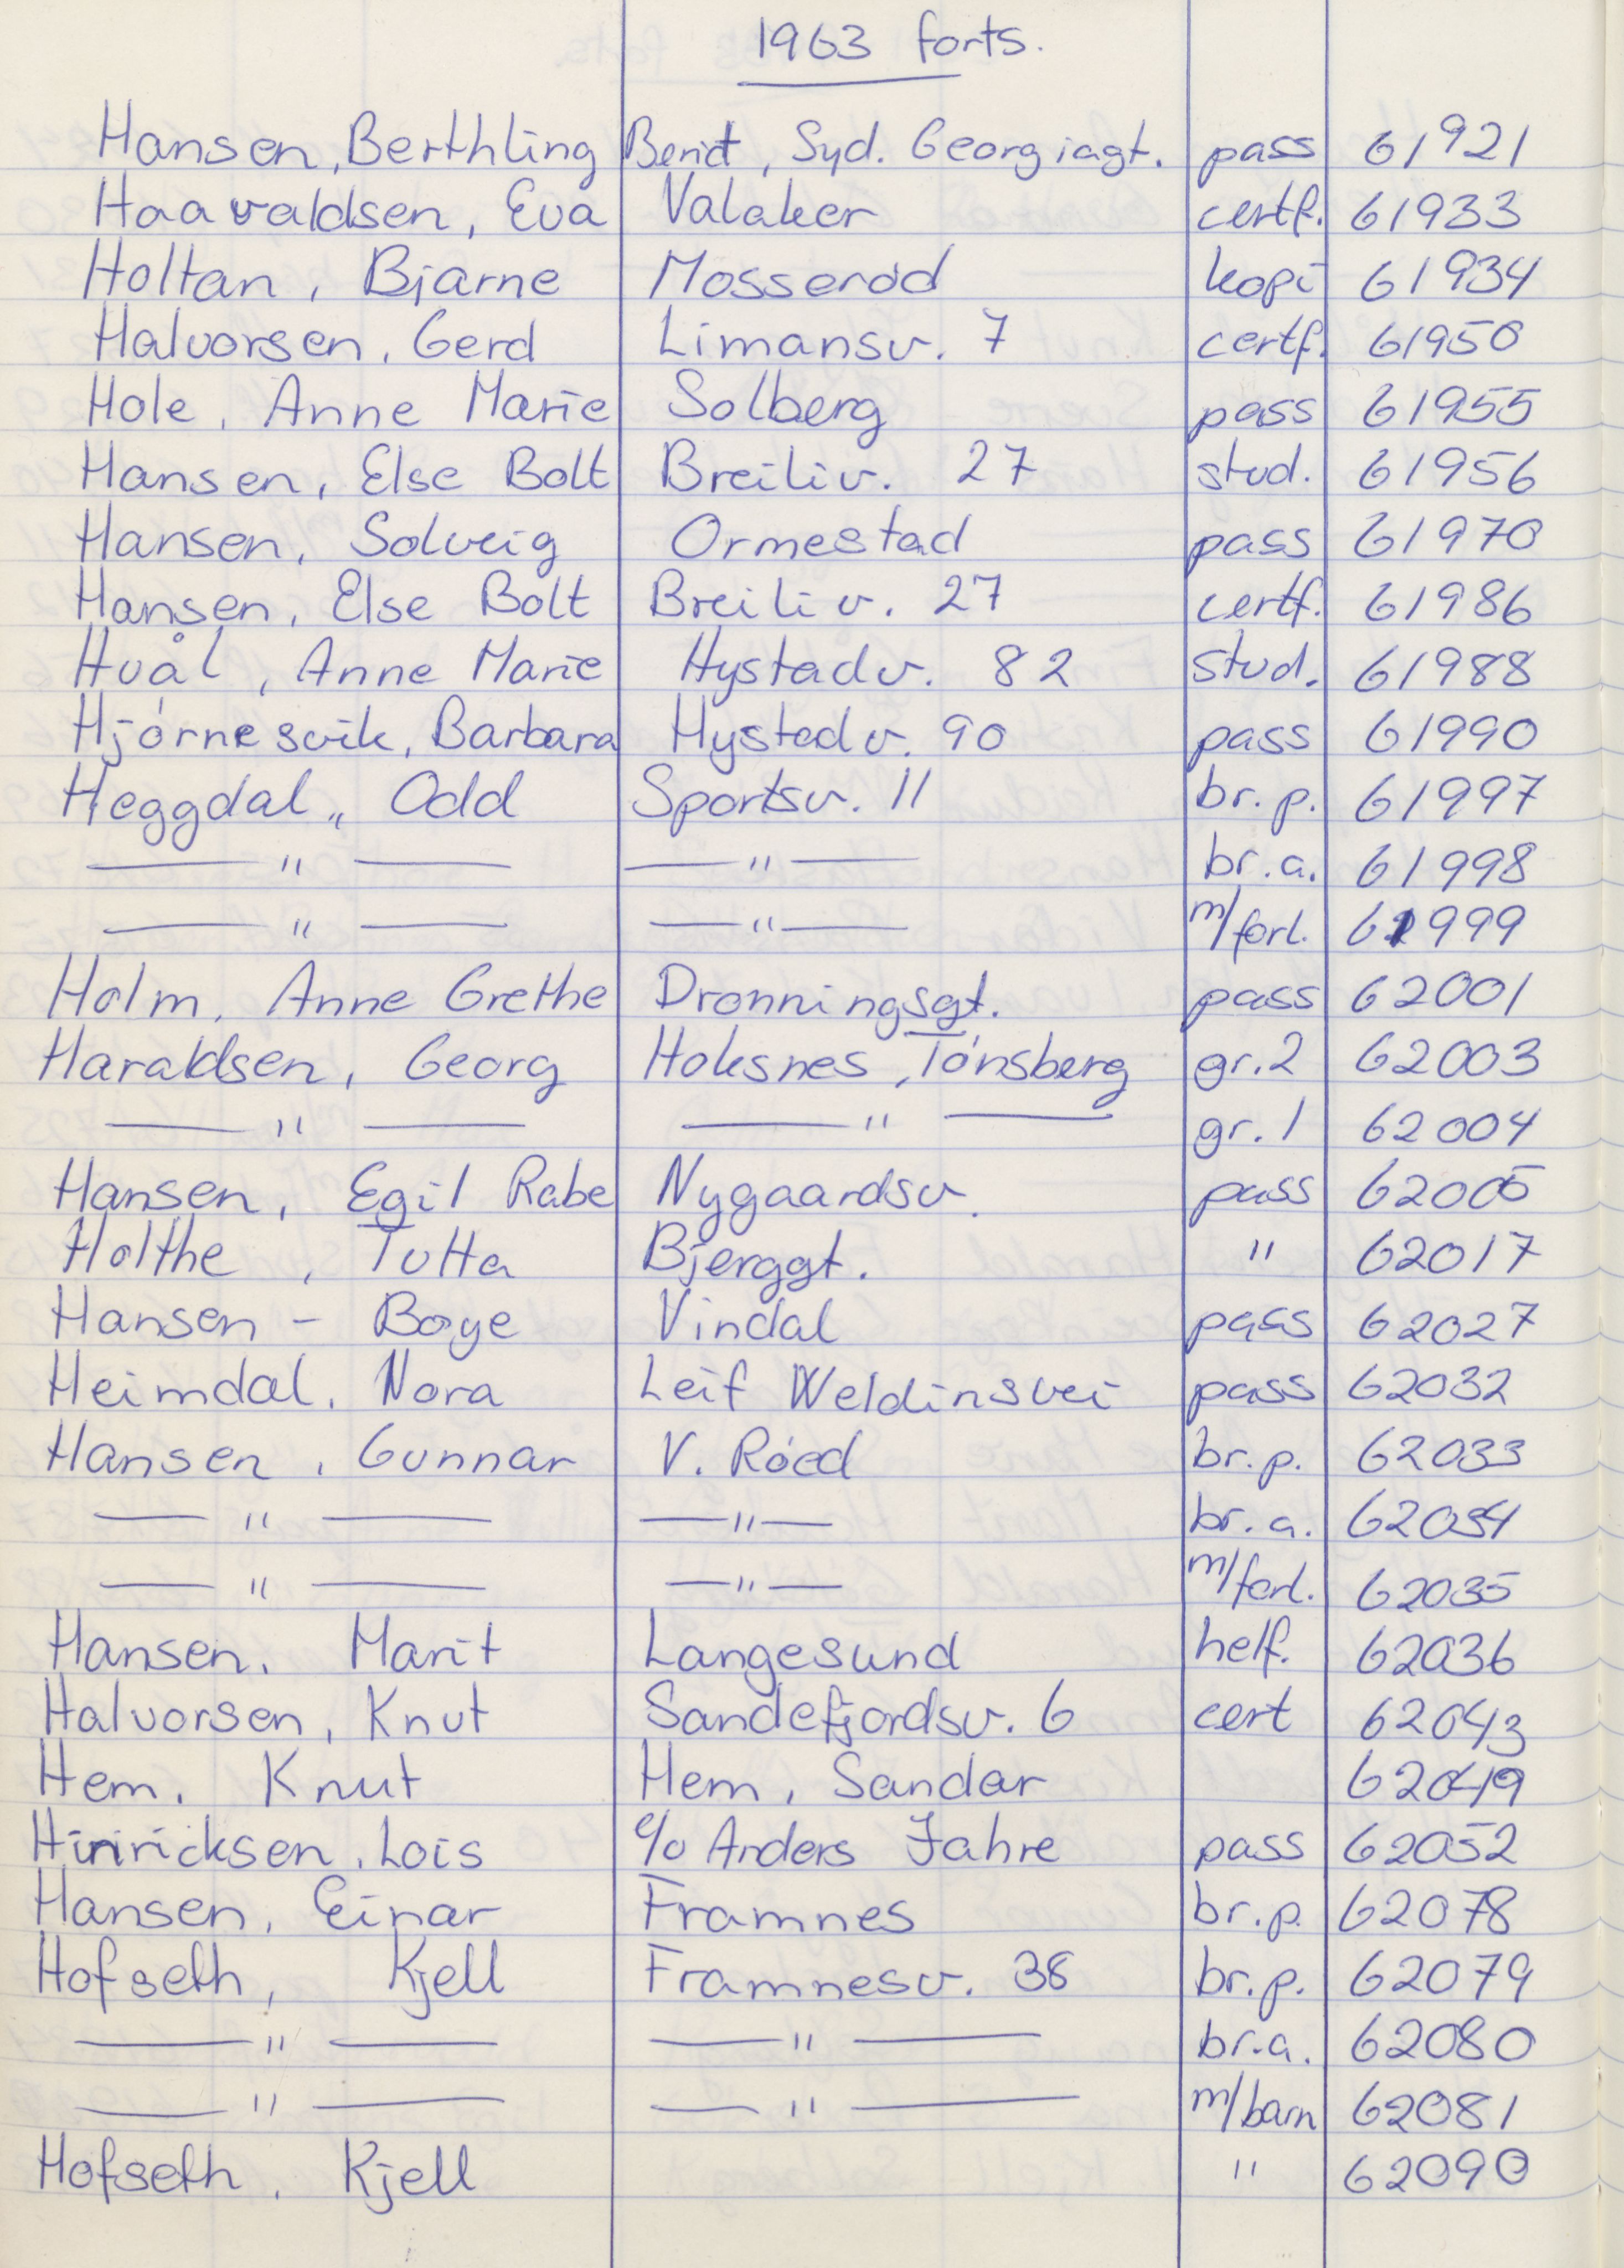 1963 forts.
Hansen, Berthling Berit, Syd. Georgiagt. pass 61921
Haavaldsen, Eva Valaker certf. 61933
Holtan, Bjarne Mosserød kopi 61934
Halvorsen, Gerd Limansv. 7 certf. 61950
Hole, Anne Marie Solberg pass 61955
Hansen, Else Bolt Breiliv. 27 stud. 61956
Hansen, Solveig Ormestad pass 61970
Hansen, Else Bolt Breiliv. 27 certf. 61986
Hvål, Anne Marie Hystadv. 82 stud. 61988
Hjørnesvik, Barbara Hystadv. 90 pass 61990
Heggdal,, Odd Sportsv. 11 br.p. 61997
— " — — " — br.a. 61998
— " — — " — m/forl. 61999
Holm, Anne Grethe Dronningsgt. pass 62001
Haraldsen, Georg Holesnes, Tønsberg gr.2 62003
— " — — " — gr.1 62004
Hansen, Egil Rabe Nygaardsv. pass 62005
Holthe, Tutta Bjerggt. " 62017
Hansen - Boye Vindal pass 62027
Heimdal, Nora Leif Weldinsvei pass 62032
Hansen, Gunnar V. Røed br.p. 62033
— " — — " — br.a. 62034
— " — — " — m/forl. 62035
Hansen, Marit Langesund helf. 62036
Halvorsen, Knut Sandefjordsv. 6 cert 62043
Hem, Knut Hem, Sandar 62049
Hinricksen, Lois c/o Anders Jahre pass 62052
Hansen, Einar Framnes br.p. 62078
Hofseth, Kjell Framnesv. 38 br.p. 62079
— " — — " — br.a. 62080
— " — — " — m/barn 62081
Hofseth, Kjell " 62090